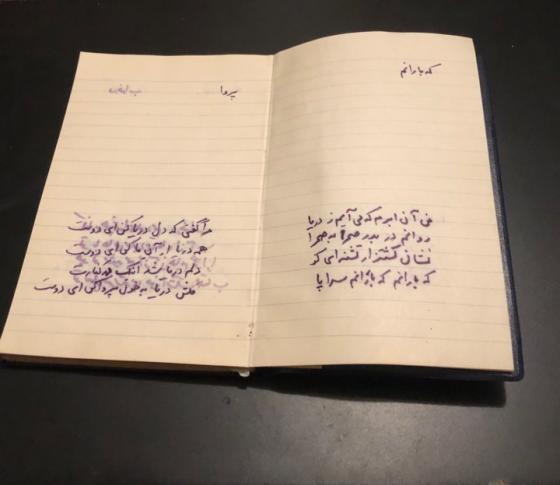 که بارانم
من آن ابرم که می آیم ز دریا
روانم در بدر صحرا به صحرا
نشان کشتزار تشنه ای کو
که بارانم که بارانم سراپا
پروا
مرا گفتی که دل دریا کن ای دوست
همه دریا از آن ما کن ای دوست
دلم دریا شد اینک در کنارت
مکش دریا به خون پروا کن ای دوست